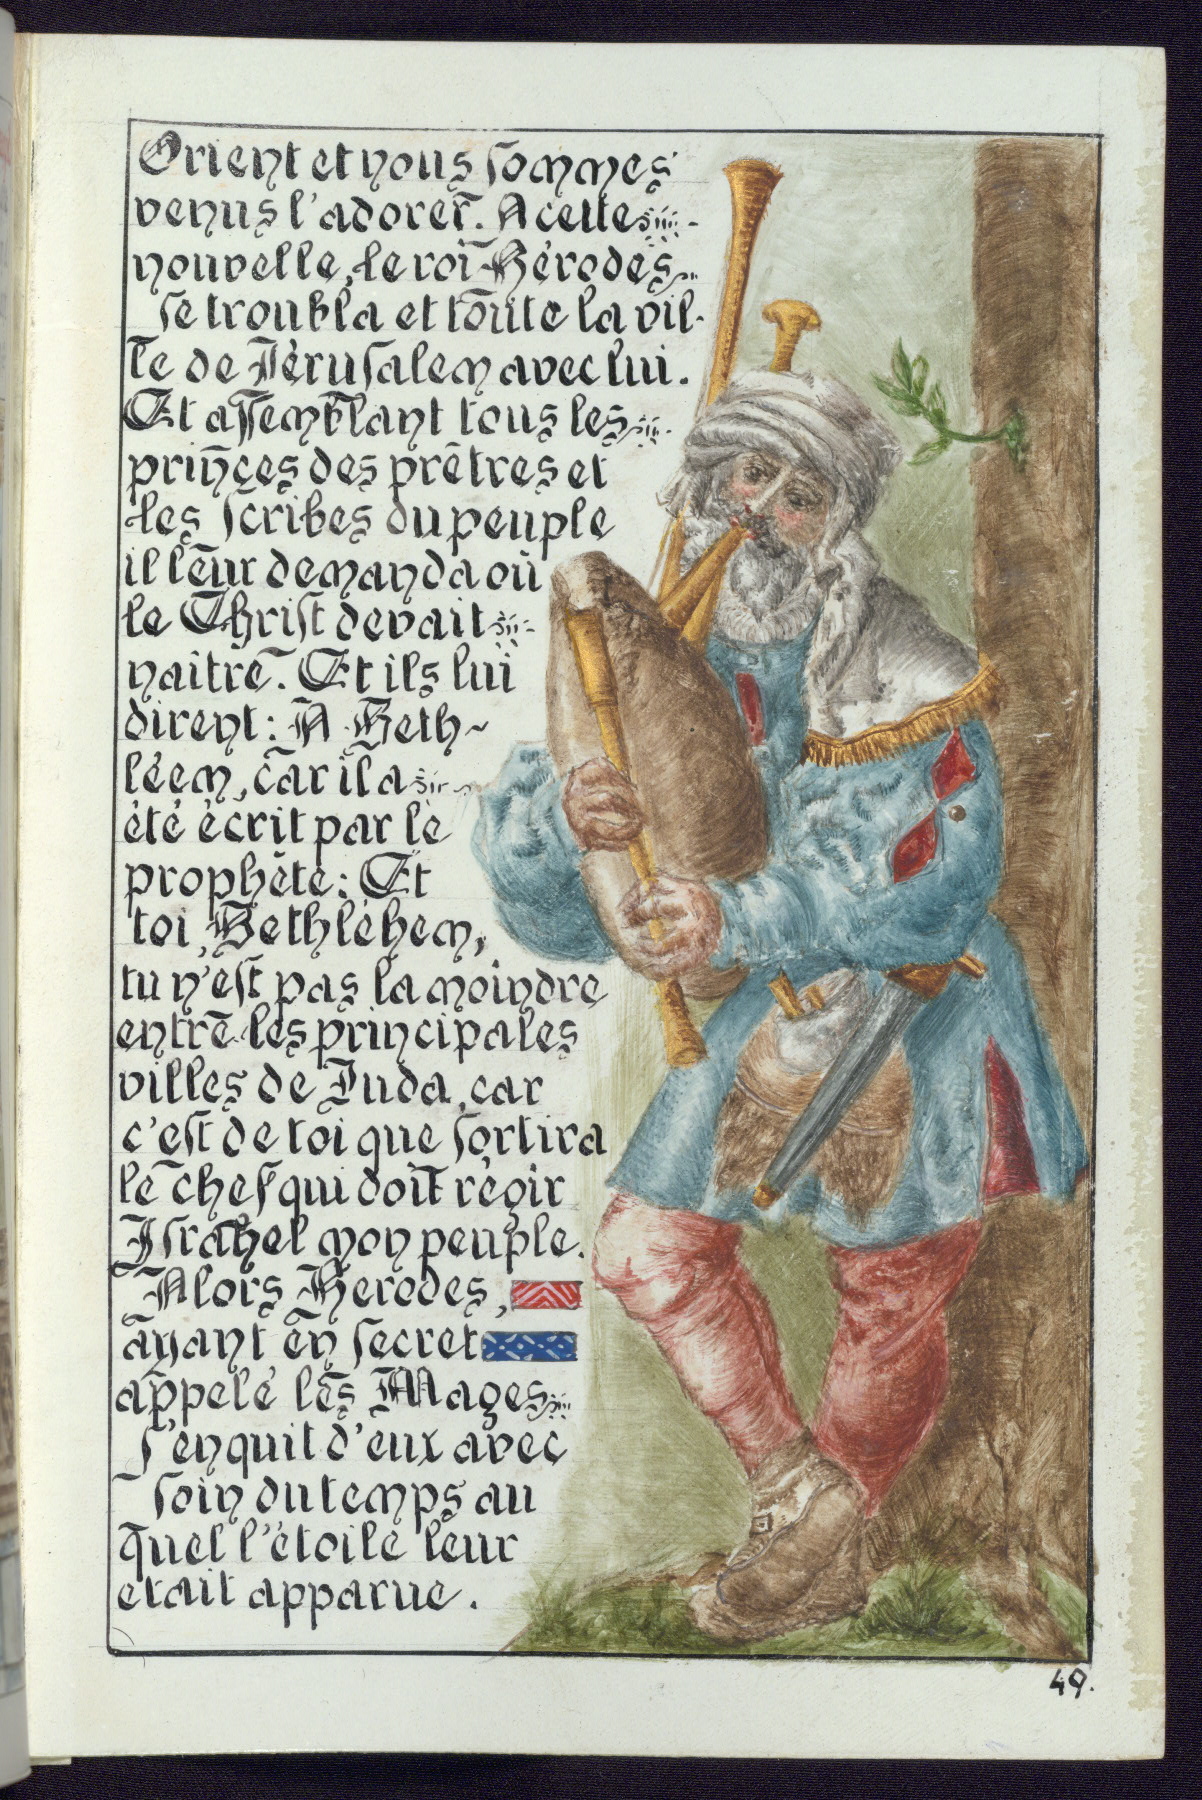 Orient et nous sommes
venus l'adorer. A cette
nouvelle, le roi Hérodes
se troubla et toute la vil-
le de Jérusalem avec lui.
Et assemblant tous les
princes des prêtres et
les scribes du peuple
il leur demanda où
le Christ devait
naitre. Et ils lui
dirent: A Beth~
léem, car il a
été écrit par le
prophète: Et
toi, Bethléhem,
tu n'est pas la moindre
entre les principales
villes de Juda, car
c'est de toi que sortira
le chef qui doit régir
Israhel mon peuple.
Alors Herodes,
ayant en secret
appelé les Mages
s'enquit d'eux avec
soin du temps au
quel l'étoile leur
etait apparue.
49.